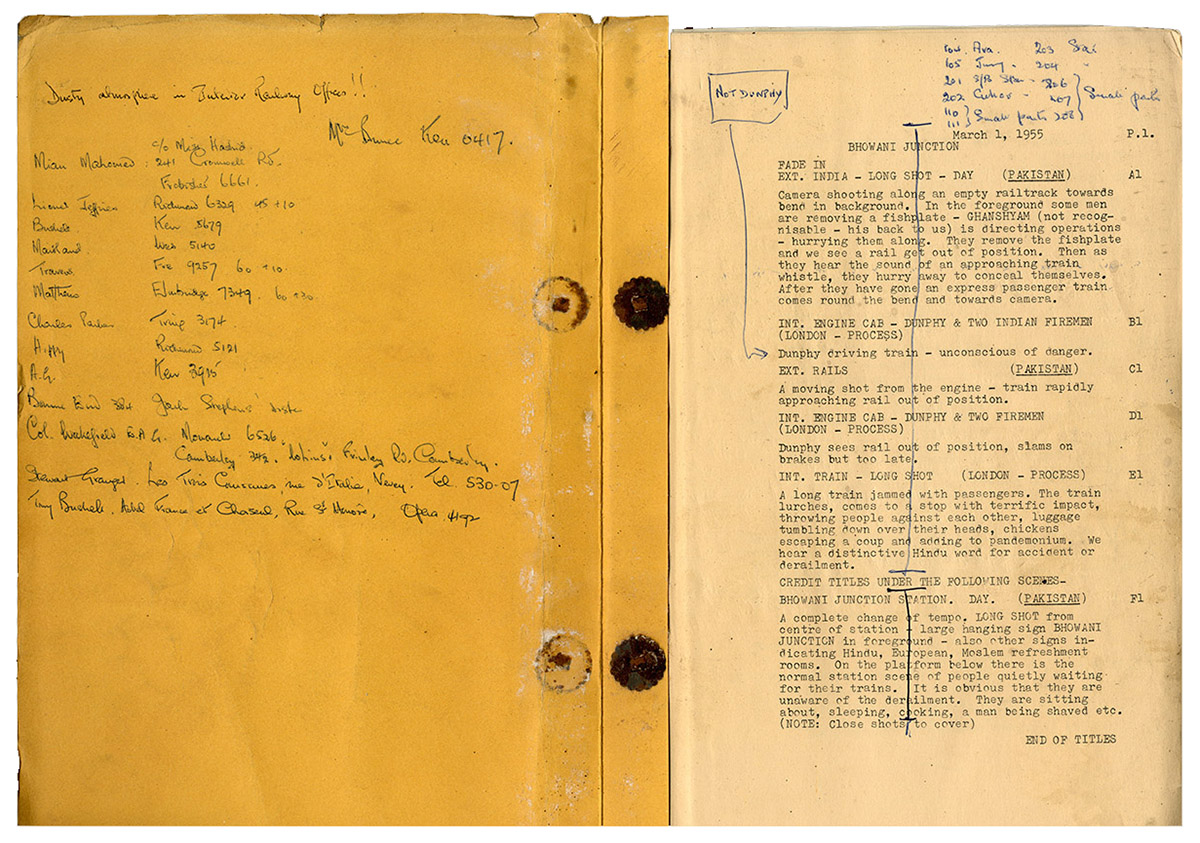 Dusty atmosphere in Interior Railway Offices!!
Ken 0417.
c/o
Mian Mahomed: 241 Cromwell Rd.
Frobisher 6661.
Lionel Jeffries Richmond 6329 45 + 10
Ken 5679
Maitland 5140
Travers 9257 60 + 10
Matthews 7349. 60 + 30.
Charles Tring 3174.
Richmond 5121
A.G. Ken 3915
Bourne End 384 Jack Stephens'
Col. Wakefield 6526
Camberley 342. Frimley Rd, Camberley.
Stewart Granger. Les Trois Couronnes, rue d'Italie, Vevey. Tel. 530-07
Tony Hotel France et Choiseul, Rue St Honore, Opera 4192
Ava. 203
105 204
201 206
202 Cukor - 207 } Small parts
110
111 } Small parts 208
NOT DUNPHY
March 1, 1955 P.1.
BHOWANI JUNCTION
FADE IN
EXT. INDIA - LONG SHOT - DAY (PAKISTAN) A1
Camera shooting along an empty railtrack towards
bend in background. In the foreground some men
are removing a fishplate - GHANSHYAM (not recog-
nisable - his back to us) is directing operations
- hurrying them along. They remove the fishplate
and we see a rail get out of position. Then as
they hear the sound of an approaching train
whistle, they hurry away to conceal themselves.
After they have gone an express passenger train
comes round the bend and towards camera.
INT. ENGINE CAB - DUNPHY & TWO INDIAN FIREMEN B1
(LONDON - PROCESS)
Dunphy driving train - unconscious of danger.
EXT. RAILS (PAKISTAN) C1
A moving shot from the engine - train rapidly
approaching rail out of position.
INT. ENGINE CAB - DUNPHY & TWO FIREMEN D1
(LONDON - PROCESS)
Dunphy sees rail out of position, slams on
brakes but too late.
INT. TRAIN - LONG SHOT (LONDON - PROCESS) E1
A long train jammed with passengers. The train
lurches, comes to a stop with terrific impact,
throwing people against each other, luggage
tumbling down over their heads, chickens
escaping a coup and adding to pandemonium. We
hear a distinctive Hindu word for accident or
derailment.
CREDIT TITLES UNDER THE FOLLOWING SCENES-
BHOWANI JUNCTION STATION. DAY. (PAKISTAN) F1
A complete change of tempo. LONG SHOT from
centre of station - large hanging sign BHOWANI
JUNCTION in foreground - also other signs in-
dicating Hindu, European, Moslem refreshment
rooms. On the platform below there is the
normal station scene of people quietly waiting
for their trains. It is obvious that they are
unaware of the derailment. They are sitting
about, sleeping, cooking, a man being shaved etc.
(NOTE: Close shots to cover)
END OF TITLES